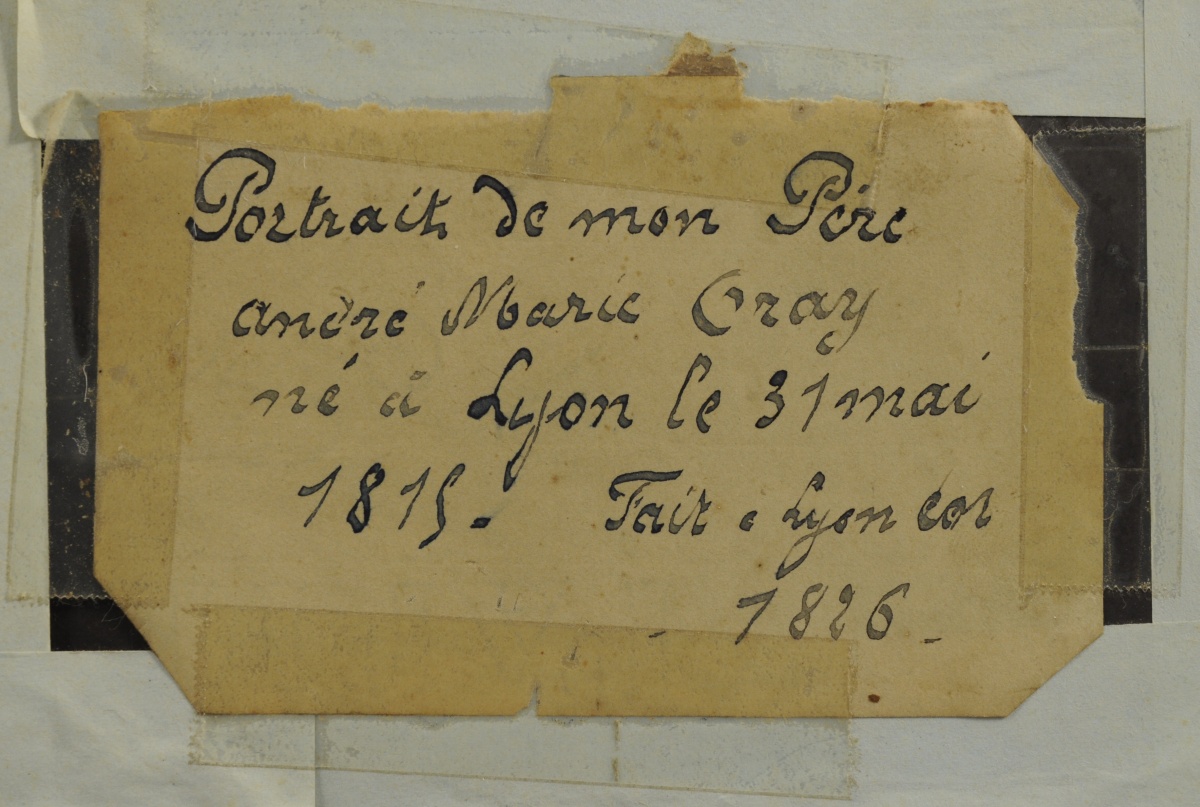 Portrait de mon Père
andré Marie Cray
né à Lyon le 31 mai
1815. Fait à Lyon en
1826.